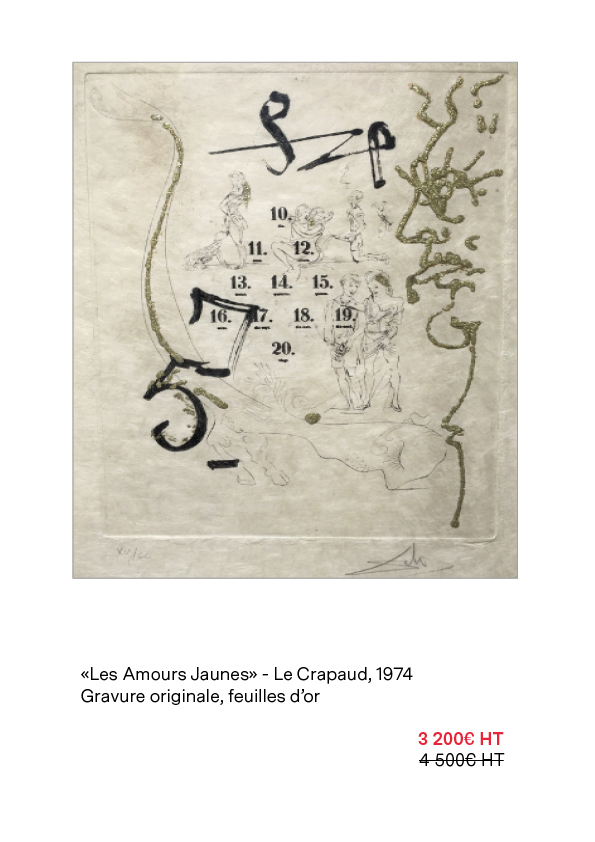 10.
11. 12.
13. 14. 15.
16. 17. 18. 19.
20.
5
«Les Amours Jaunes» - Le Crapaud, 1974
Gravure originale, feuilles d’or
3 200€ HT
4 500€ HT